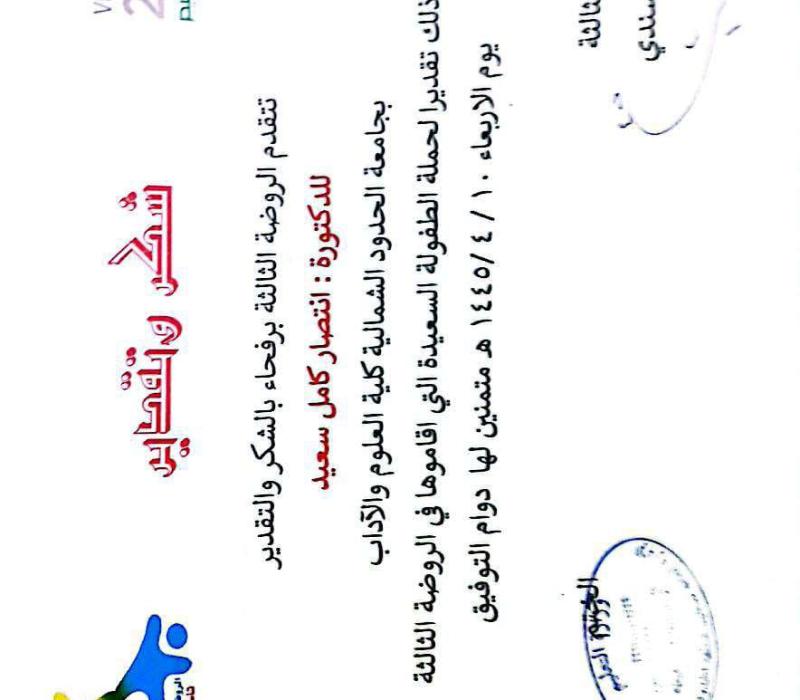 شكر وتقدير
تتقدم الروضة الثالثة برفحاء بالشكر والتقدير
للدكتورة : انتصار كامل سعيد
بجامعة الحدود الشمالية كلية العلوم والآداب
ذلك تقديرا لحملة الطفولة السعيدة التي اقاموها في الروضة الثالثة
يوم الاربعاء ١٠ / ٤ / ١٤٤٥ هـ متمنين لها دوام التوفيق
الختم